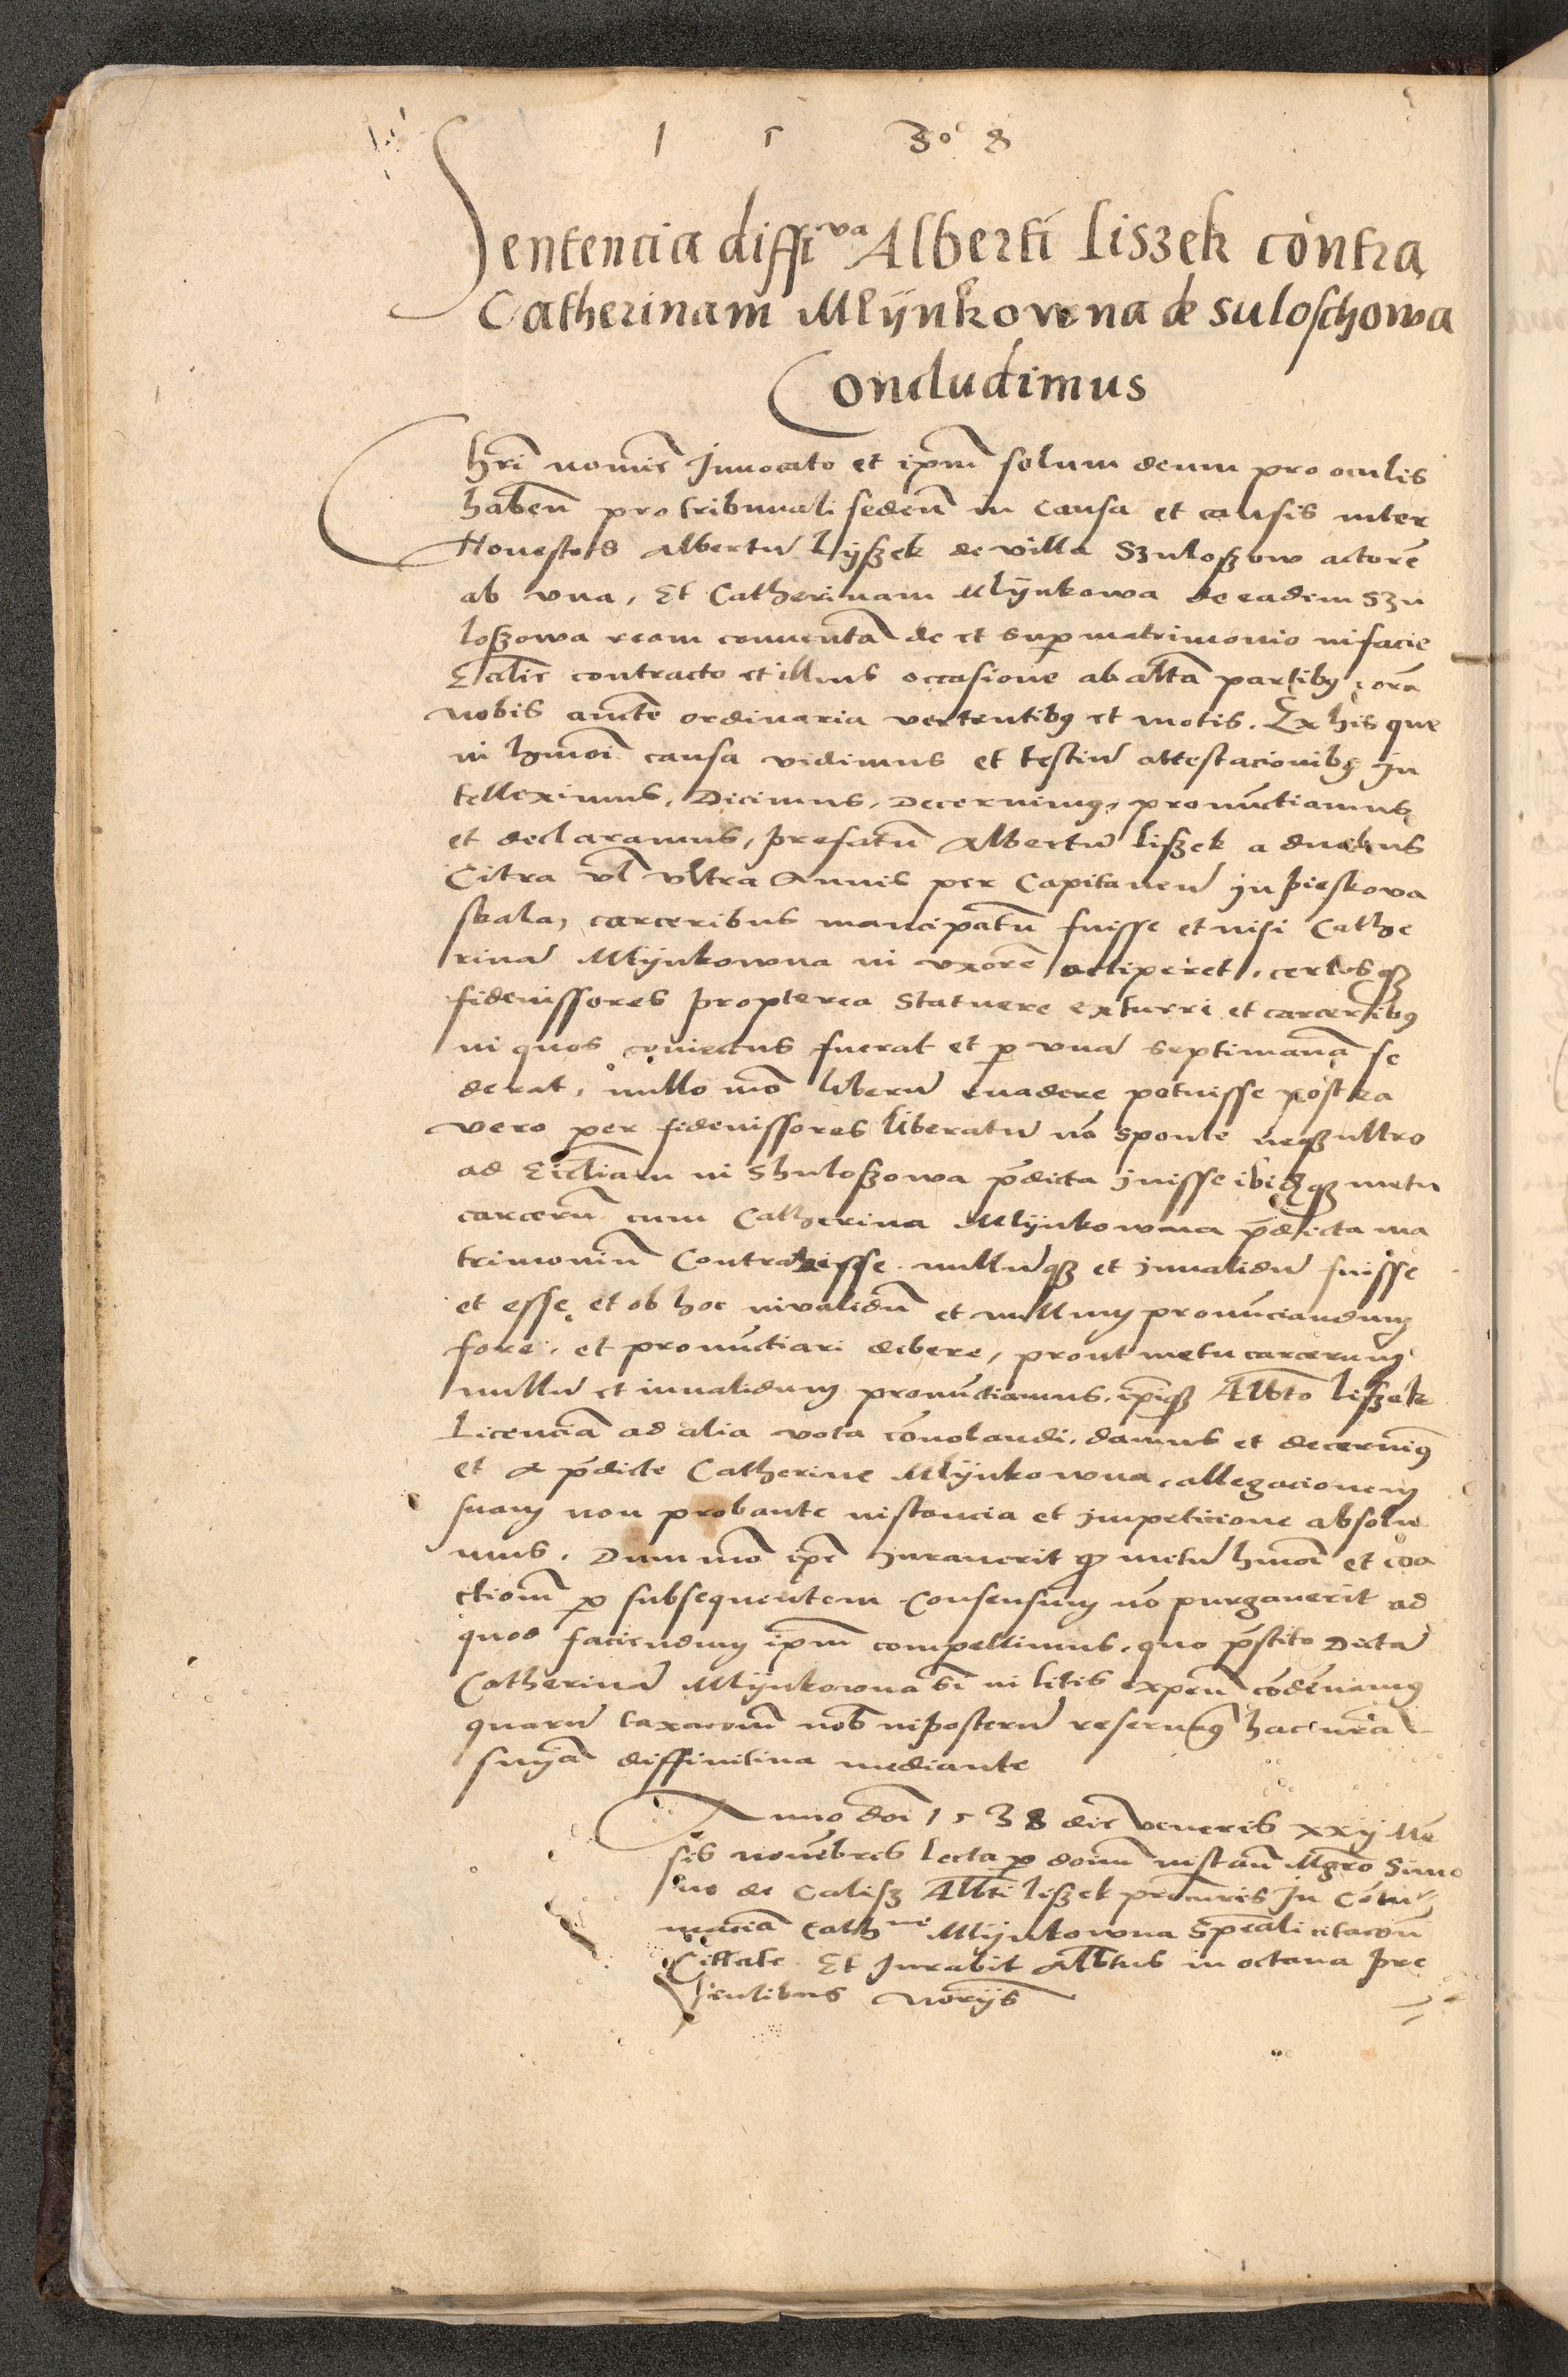 1 5 3º 8
Sentencia diffiva Alberti Liszek contra
Catherinam Mlÿnkowna de Suloschowa
Concludimus
Chri nomine Invocato et ipm solum deum pro oculis
haben pro tribunali seden in causa et causis inter
Honestos Albertu Lÿszek de villa Szuloszow actore
ab vna, Et Catherinam Mlÿnkowa de eadem Szu
loszowa ream conuenta de et sup matrimonio in facie
Ecclie contracto et illius occasione ab alta partibus cora
nobis aucte ordinaria vertentibus et motis. Ex his que
in hmoi causa vidimus et testiu attestacionibus In
telleximus, Dicimus, Decernimus, pronuctiamus
et declaramus, prefatu Albertu Liszek a duobus
Citra vl vltra Annis per Capitaneu in pieskova
skala, carceribus mancipatu fuisse et nisi Cathe
rina Mlÿnkowna in vxore acciperet, certosque
fideiussores propterea statuere ex turri et carceribus
in quos coniectus fuerat et p vna septimana se
derat, nullo mo liberu euadere potuisse postea
vero per fideiussores liberatu no sponte neque ultro
ad Eccliam in Shuloszowa pdicta iuisse ibidque metu
carceru cum Catherina Mlÿnkowna pdicta ma
trimoniu Contraxisse nulluque et inualidu fuisse
et esse et ob hoc inualidu et nullum pronuciandum
fore, et pronuctiari debere, prout metu carcerum
nullu et inualidum pronuctiamus, ipique Albto Liszek
Licencia ad alia vota conolandi, damus et decernimus
et a pdicte Catherine Mlÿnkowna, allegacionem
suam non probante instancia et impeticione absolui
mus. Dum mo ipe Iurauerit que metu hmoi et coa
ctiom p subsequentem Consensum no purgauerit ad
quod faciendum ipm compellimus, quo pstito Dicta
Catherina Mlÿnkowna si in litis expen codenamus
quaru taxacom nob in posteru reseruamus hac nra
snia diffinitiua mediante
Anno dni 1538 die Veneris xxij Me
sis nouebris lecta p dnum instan Mgro Simo
ne de Calisz Albti Liszek procuris In Contu
macia Cathne Mlÿnkowna speali citacon
Cittate Et Iurabit Albtus in octaua pre
sentibus Norijs